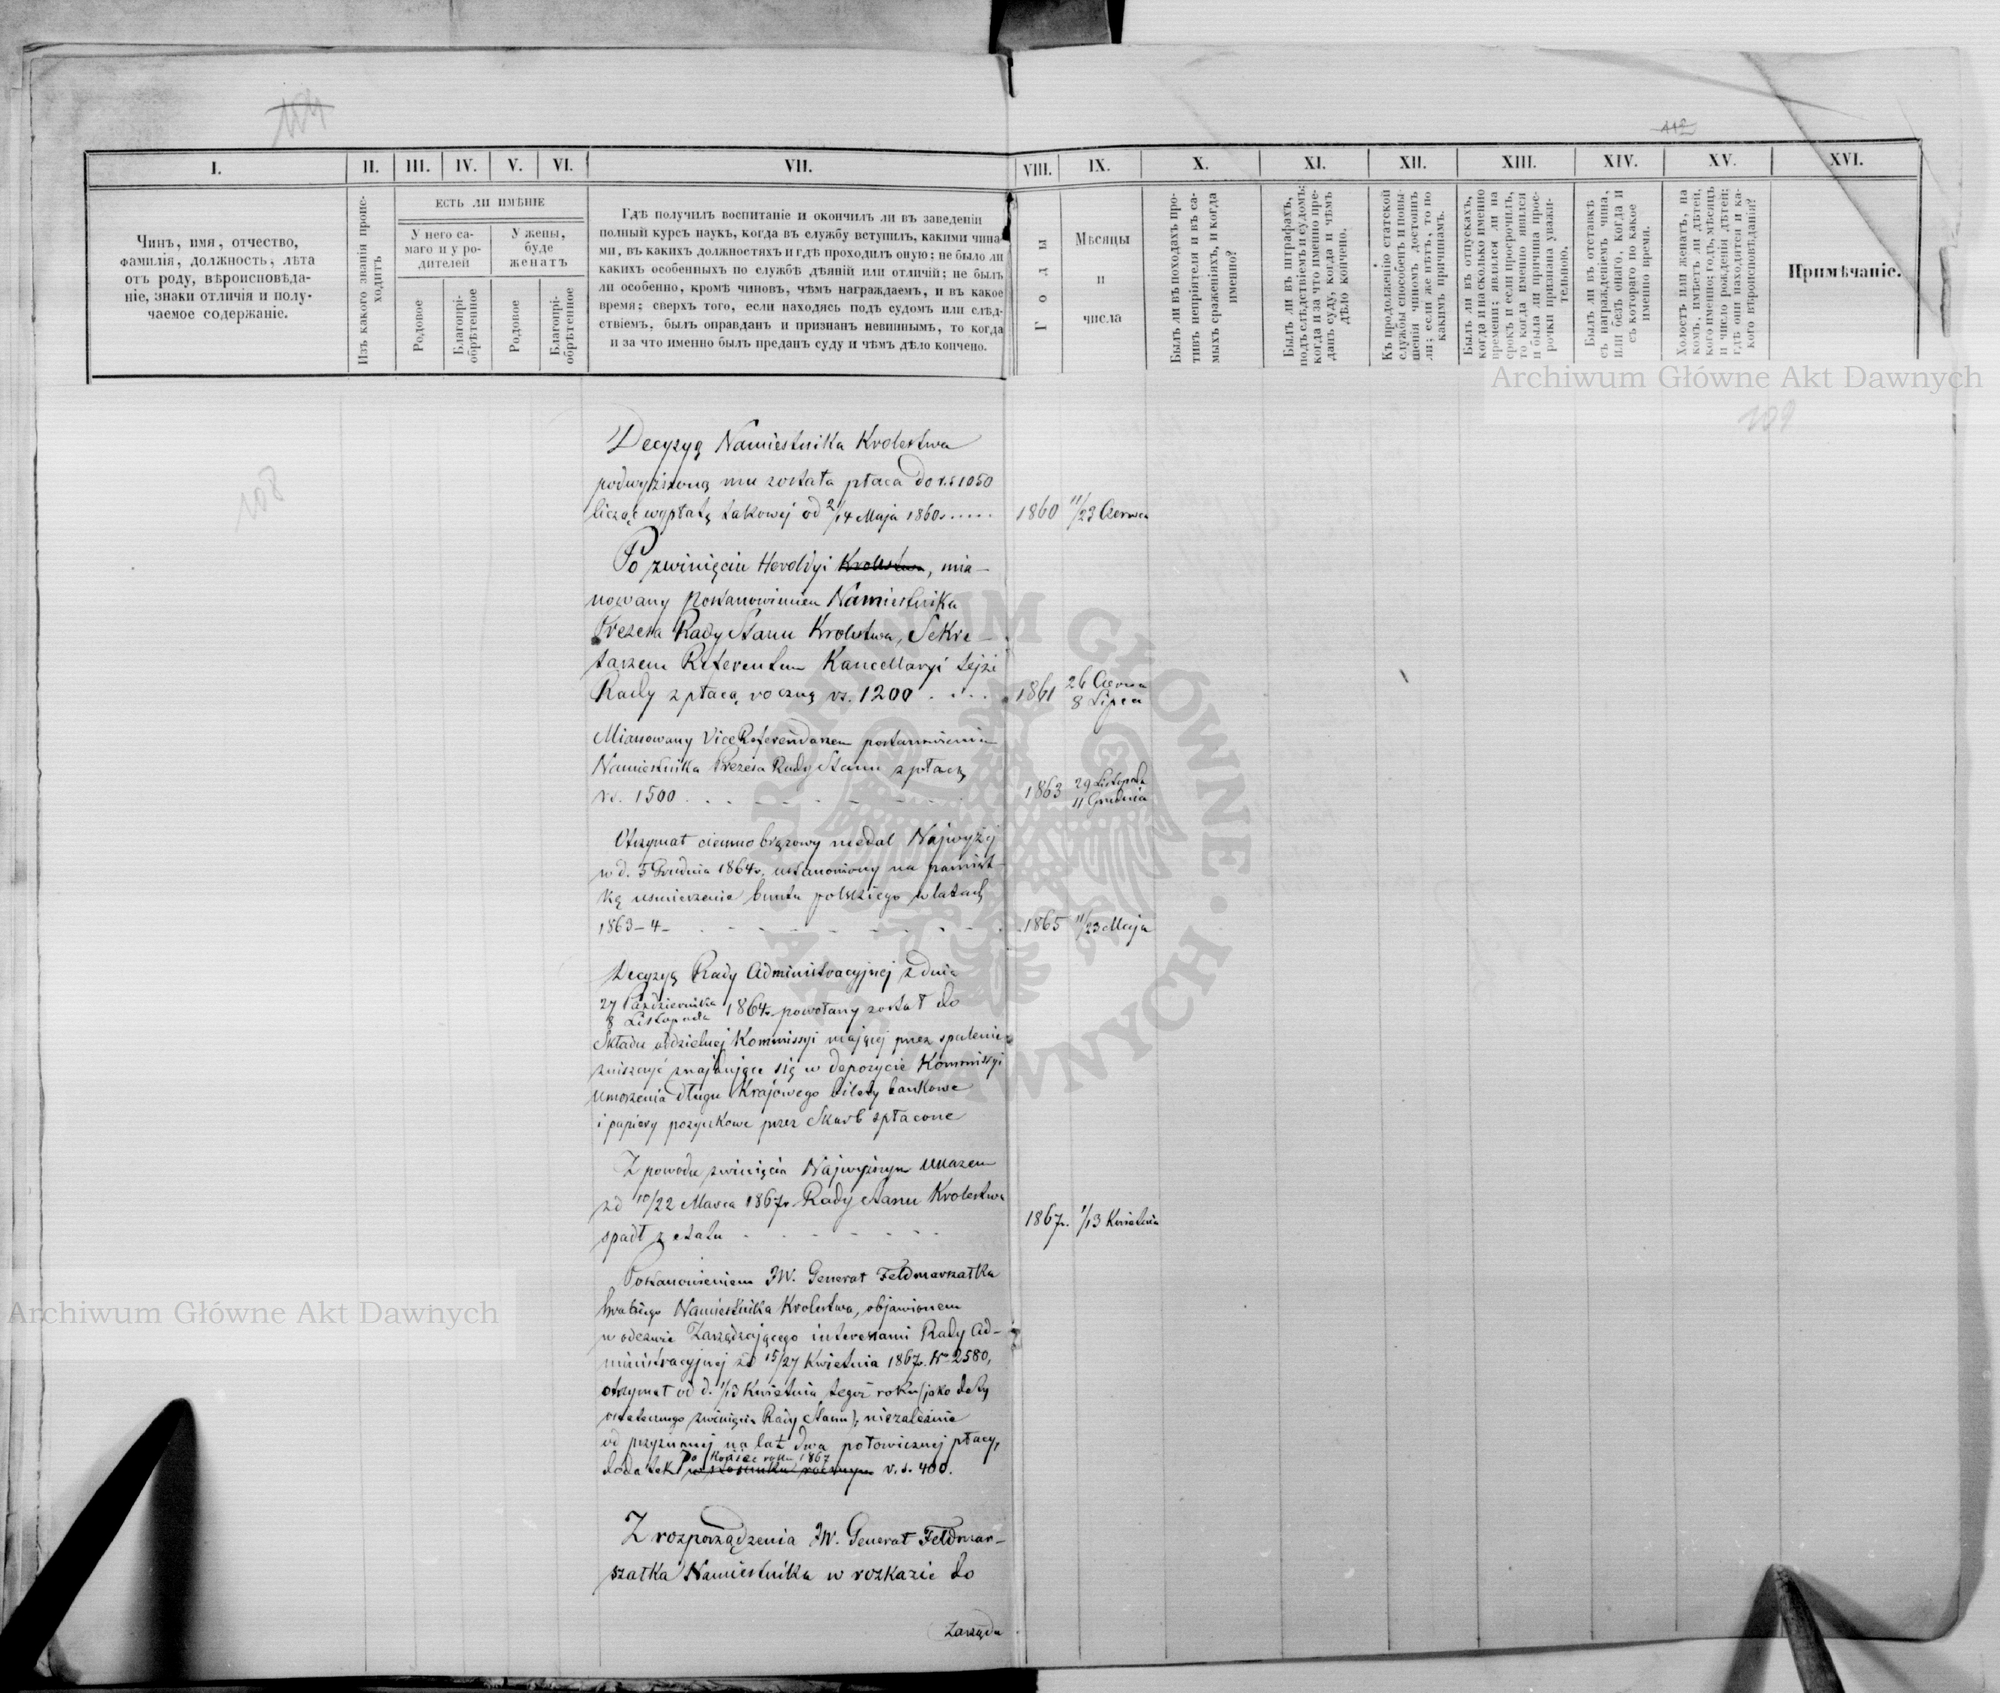 104
112
I.
II.
III.
IV.
V.
VI.
VII.
VIII.
IX.
X.
XI.
XII.
XIII.
XIV.
XV.
XVI.
Чинъ, имя, отчество,
фамилія, должность, лѣта
отъ роду, вѣроисповѣда-
ніе, знаки отличія и полу-
чаемое содержаніе.
Изъ какого званія проис-
ходитъ
ЕСТЬ ЛИ ИМѢНІЕ
У него са-
маго и у ро-
дителей
У жены,
буде
женатъ
Родовое
Благопрі-
обрѣтенное
Родовое
Благопрі-
обрѣтенное
Гдѣ получилъ воспитаніе и окончилъ ли въ заведеніи
полный курсъ наукъ, когда въ службу вступилъ, какими чина-
ми, въ какихъ должностяхъ и гдѣ проходилъ оную; не было ли
какихъ особенныхъ по службѣ дѣяній или отличій; не былъ
ли особенно, кромѣ чиновъ, чѣмъ награждаемъ, и въ какое
время; сверхъ того, если находясь подъ судомъ или слѣд-
ствіемъ, былъ оправданъ и признанъ невиннымъ, то когда
и за что именно былъ преданъ суду и чѣмъ дѣло кончено.
Годы
Мѣсяцы
и
числа
Былъ ли въ походахъ про-
тивъ непріятеля и въ са-
мыхъ сраженіяхъ, и когда
именно?
Былъ ли въ штрафахъ,
подъ слѣдствіемъ и судомъ;
когда и за что именно пре-
данъ суду, когда и чѣмъ
дѣло кончено.
Къ продолженію статской
службы способенъ и повы-
шенія чиномъ достоинъ
ли; если же нѣтъ, то по
какимъ причинамъ.
Былъ ли въ отпускахъ,
когда и насколько именно
времени; явился ли на
срокъ и если просрочилъ,
то когда именно явился
и была ли причина прос-
рочки признана уважи-
тельною.
Былъ ли въ отставкѣ
съ награжденіемъ чина,
или безъ онаго, когда и
съ котораго по какое
именно время.
Холостъ или женатъ, на
комъ, имѣетъ ли дѣтей,
кого именно; годъ, мѣсяцъ
и число рожденія дѣтей;
гдѣ они находятся и ка-
кого вѣроисповѣданія?
Примѣчаніе.
Archiwum Główne Akt Dawnych
108
109
Decyzyą Namiestnika Krolestwa
podwyższoną mu została płaca do rs 1050
licząc wypłatę takowej od 2/14 Maja 1860r.....
1860 11/23 Czerwca
Po zwinięciu Heroldyi Krolestwa, mia-
nowany Postanowieniem Namiestnika
Prezesa Rady Stanu Krolestwa, Sekre-
tarzem Referentem Kancellaryi tejże
Rady z płacą roczną rs. 1200 . . . .
1861 26 Czerwca
8 Lipca
Mianowany ViceReferendarzem postanowieniem
Namiestnika Prezesa Rady Stanu z płacą
rs. 1500
1863 29 Listopada
11 Grudnia
Otrzymał ciemno brązowy medal Najwyżej
w d. 5 Grudnia 1864r. ustanowiony na pamiąt-
kę usmierzenia buntu polskiego w latach
1863-4-
1865 11/23 Maja
Decyzyą Rady Administracyjnej z dnia
27 Października
8 Listopada 1864r. powołany został do
Składu oddzielnej Kommissyi mającej przez spalenie
zniszczyć znajdujące się w depozycie Kommissyi
Umorzenia długu Krajowego bilety bankowe
i papiery pożyczkowe przez Skarb spłacone
Z powodu zwinięcia Najwyższym ukazem
z d 10/22 Marca 1867r. Rady Stanu Krolestwa
spadł z etatu
1867r. 1/13 Kwietnia
Postanowieniem JW. Generał Feldmarszałka
hrabiego Namiestnika Krolestwa, objawionem
w odezwie Zarządzającego interesami Rady Ad-
ministracyjnej z d 15/27 Kwietnia 1867r. Nr. 2580,
otrzymał od d. 1/13 Kwietnia tegoż roku (jako daty
ostatecznego zwinięcia Rady Stanu), niezależnie
od przyznanej na lat dwa połowicznej płacy,
po koniec roku 1867
dodatek w stosunku rocznym r.s. 400.
Z rozporządzenia JW. Generał Feldmar-
szałka Namiestnika w rozkazie do
Zarządu
Archiwum Główne Akt Dawnych
ARCHIWUM GŁÓWNE · AKT DAWNYCH ·